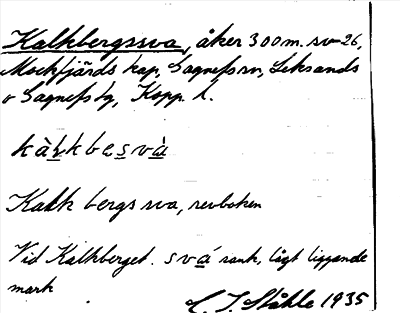 Kalkbergssva, åker 300 m. sv 26,
Mockfjärds kap, Gagnefs sn, Leksands
o Gagnefs tg, Kopp. l.
kàlkbesvà
Kalk bergs sva, revboken
Vid Kalkberget. svá sank, lågt liggande
mark
C. I. Ståhle 1935